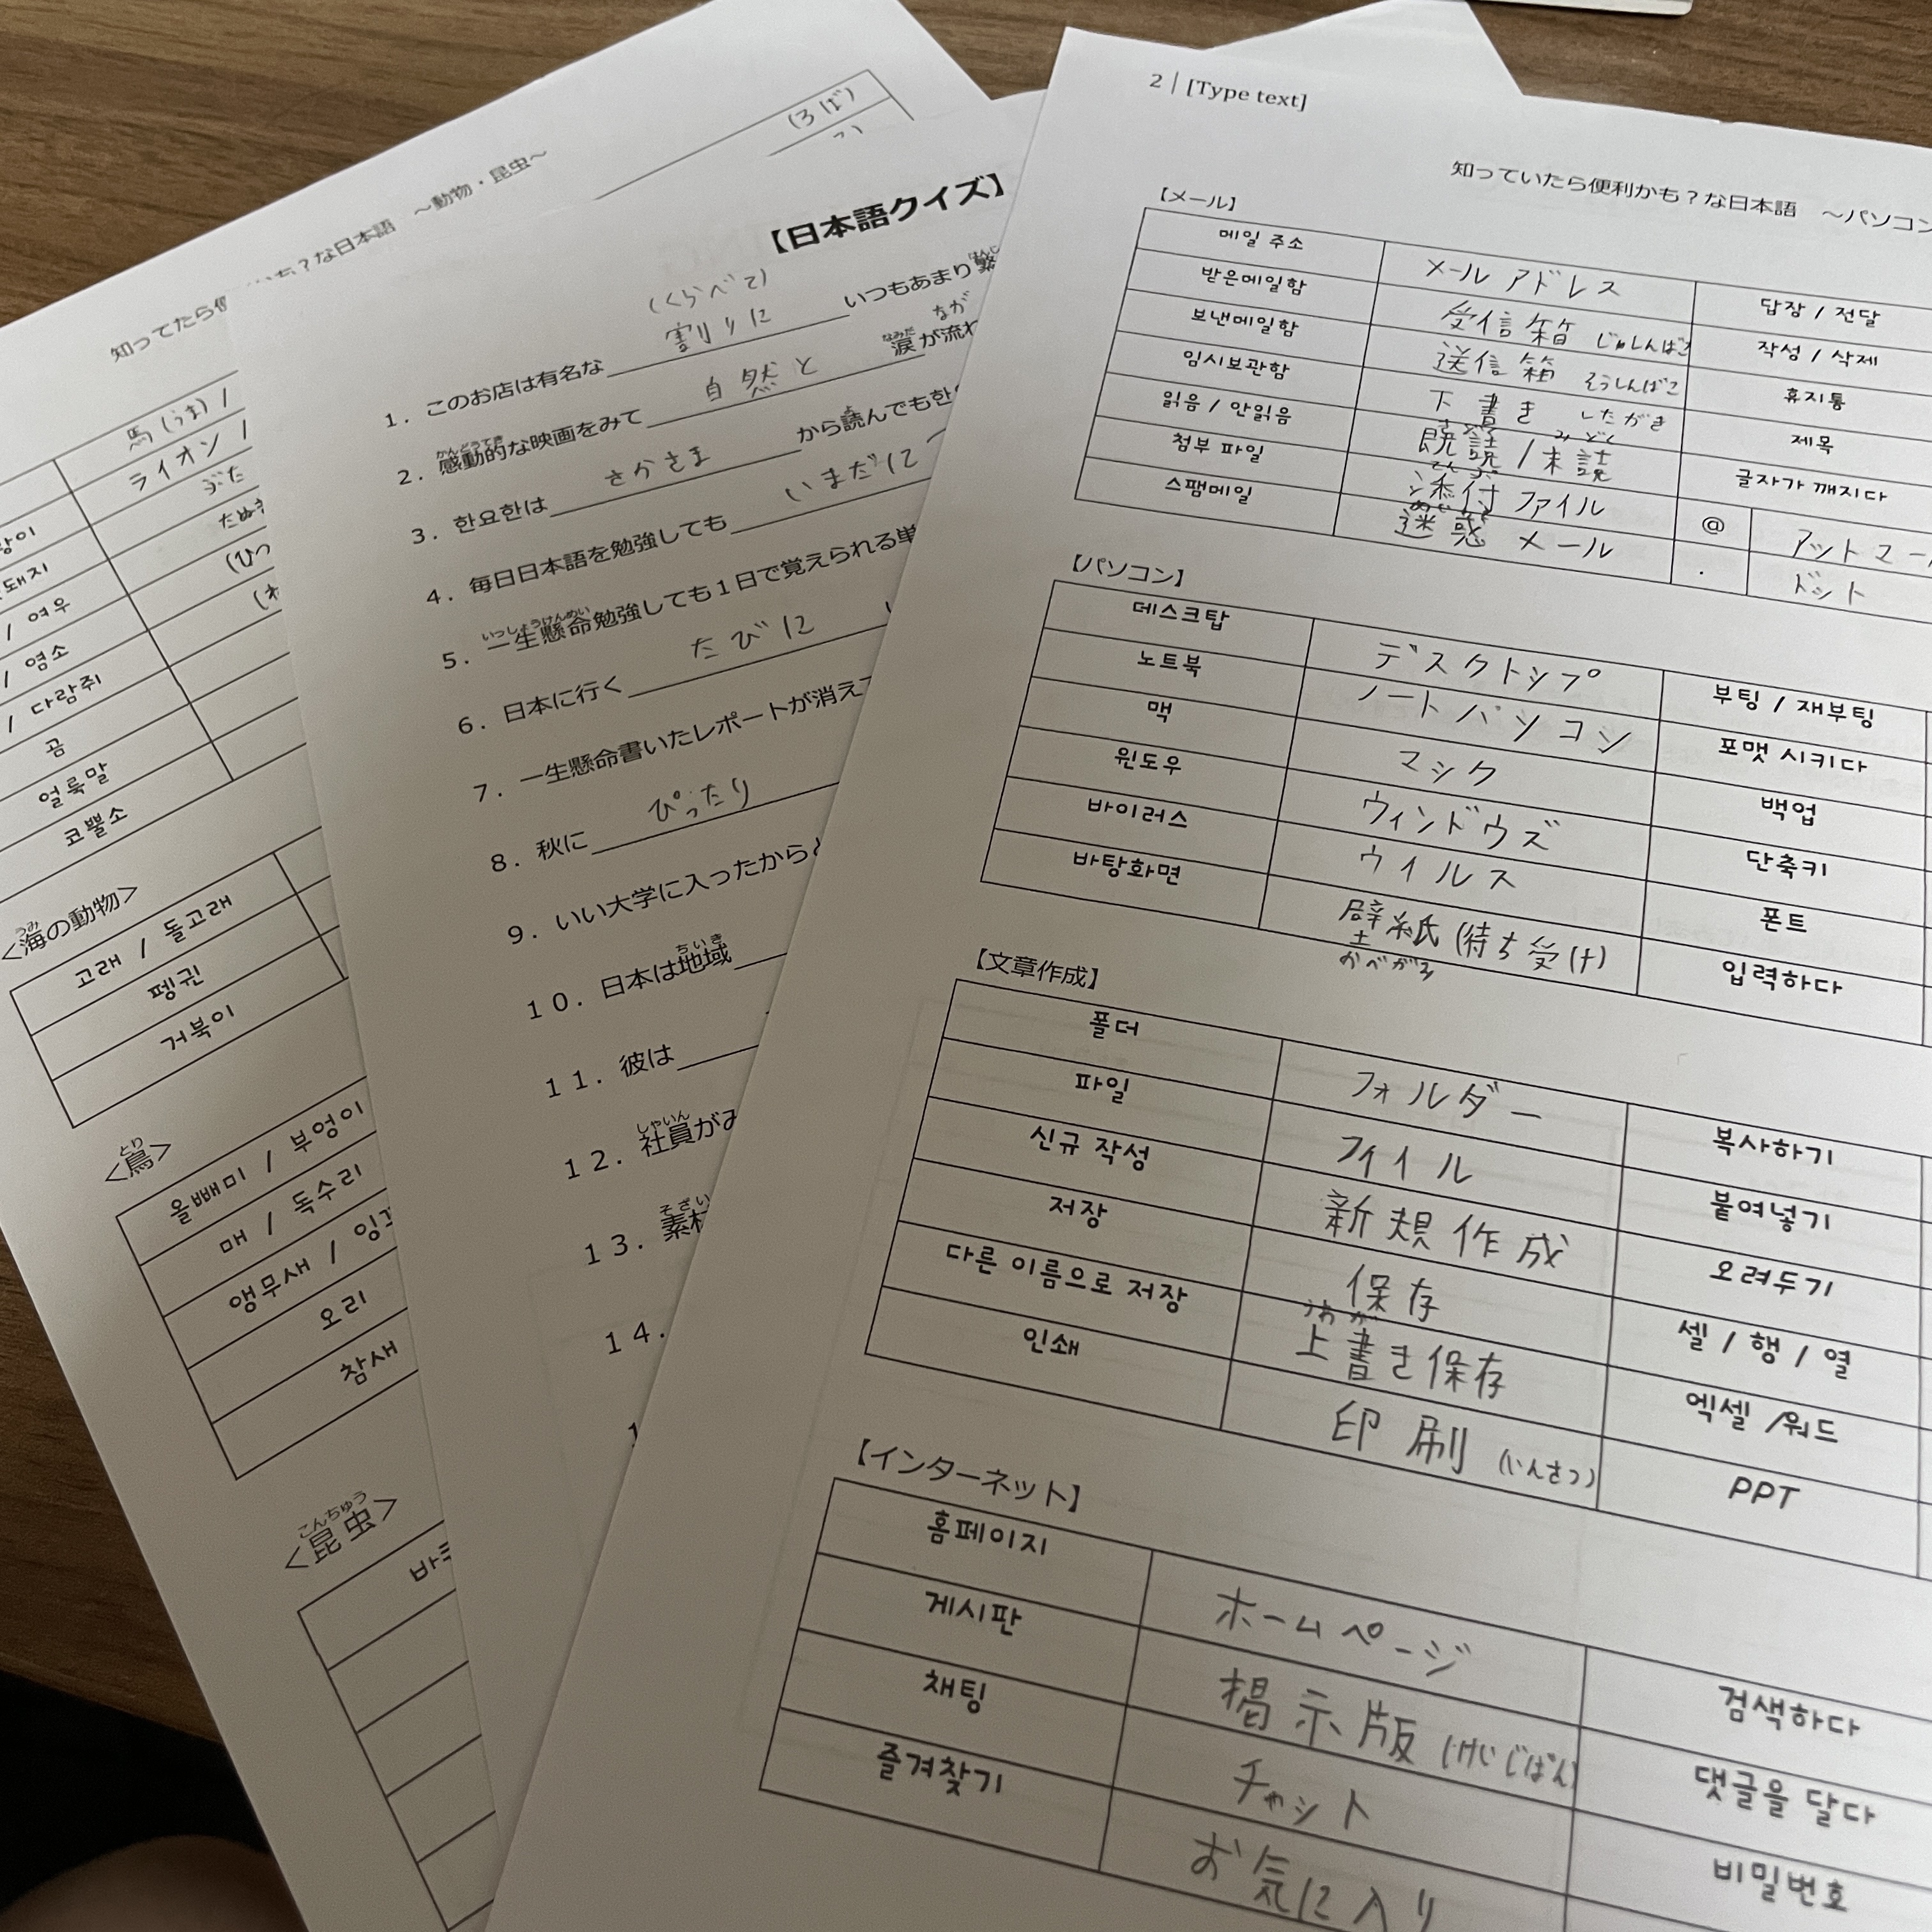 (ろば)
知ってたら便
かも？な日本語　～動物・昆虫～
馬(うま) /
ライオン /
ぶた
돼지
/ 여우
(ひつ
/ 염소
/ 다람쥐
곰
얼룩말
코뿔소
うみ
<海の動物>
고래 / 돌고래
펭귄
거북이
とり
<鳥>
올빼미 / 부엉이
매 / 독수리
앵무새 /
오리
참새
こんちゅう
<昆虫>
【日本語クイズ】
(くらべて)
1．このお店は有名な 割りに いつもあまり
かんどうてき なみだ なが
2．感動的な映画をみて 自然と 涙が流れ
よ
3．한요한は さかさま から読んでも한
4．毎日日本語を勉強しても いまだに
いっしょうけんめい
5．一生懸命勉強しても１日で覚えられる単
6．日本に行く たびに
7．一生懸命書いたレポートが消えて
8．秋に ぴったり
9．いい大学に入ったからと
ちいき
１０．日本は地域
１１．彼は
しゃいん
１２．社員がみ
そざい
１３．素材
１４．
2 | [Type text]
知っていたら便利かも？な日本語　～パソコン
【メール】
메일 주소 メールアドレス 답장 / 전달
받은메일함 受信箱 じゅしんばこ 작성 / 삭제
보낸메일함 送信箱 そうしんばこ 휴지통
임시보관함 下書き したがき 제목
읽음 / 안읽음 既読 / 未読 글자가 깨지다
첨부 파일 添付ファイル @ アットマー
스팸메일 迷惑メール . ドット
【パソコン】
데스크탑 デスクトップ 부팅 / 재부팅
노트북 ノートパソコン 포맷 시키다
맥 マック 백업
윈도우 ウィンドウズ 단축키
바이러스 ウイルス 폰트
바탕화면 壁紙(待ち受け) 입력하다
かべがみ
【文章作成】
폴더 フォルダー 복사하기
파일 ファイル 붙여넣기
신규 작성 新規作成 오려두기
저장 保存 셀 / 행 / 열
うわが
다른 이름으로 저장 上書き保存 엑셀 /워드
인쇄 印刷 (いんさつ) PPT
【インターネット】
홈페이지 ホームページ 검색하다
게시판 掲示版 (けいじばん) 댓글을 달다
채팅 チャット 비밀번호
즐겨찾기 お気に入り